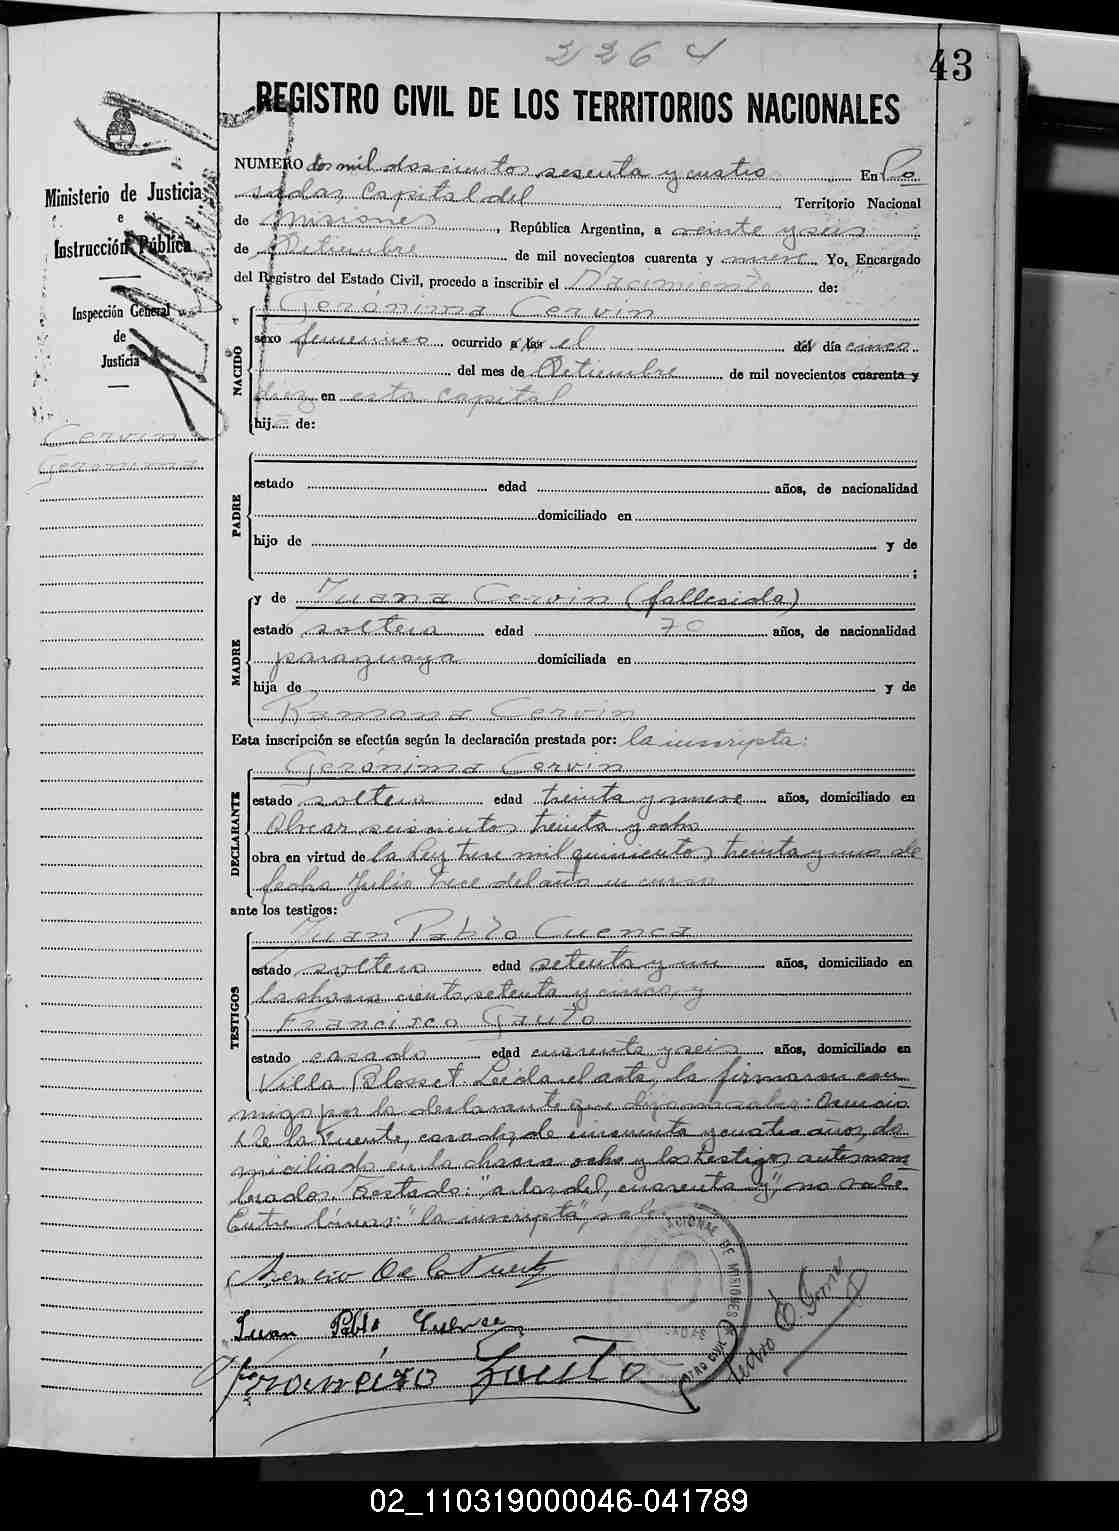 2264
43
REGISTRO CIVIL DE LOS TERRITORIOS NACIONALES
Ministerio de Justicia
e
Instrucción Pública
Inspección General
de
Justicia
Cervin
Geronima
NUMERO dos mil doscientos sesenta y cuatro En Po
sadas Capital del Territorio Nacional
de Misiones, República Argentina, a veinte y seis
de Setiembre de mil novecientos cuarenta y nueve Yo, Encargado
del Registro del Estado Civil, procedo a inscribir el Nacimiento de:
NACIDO
Geronima Cervin
sexo femenino ocurrido a las el del día cinco
del mes de Setiembre de mil novecientos cuarenta y
diez en esta capital
hij.... de:
PADRE
estado edad años, de nacionalidad
domiciliado en
hijo de y de
;
MADRE
y de Juana Cervin (fallecida)
estado soltera edad 70 años, de nacionalidad
paraguaya domiciliada en
hija de y de
Ramona Cervin
Esta inscripción se efectúa según la declaración prestada por: la inscripta:
DECLARANTE
Gerónima Cervin
estado soltera edad treinta y nueve años, domiciliado en
Alvear seiscientos treinta y ocho
obra en virtud de la Ley trece mil quinientos treinta y uno de
fecha Julio trece del año en curso
ante los testigos:
TESTIGOS
Juan Pablo Cuenca
estado soltero edad setenta y un años, domiciliado en
la chacra ciento setenta y cinco y
Francisco Gauto
estado casado edad cuarenta y seis años, domiciliado en
Villa Blosset Leída el acta, la firmaron con
migo por la declarante que dijo no saber:
De la Fuente, casado, de cincuenta y cuatro años, do
miciliado en la chacra ocho y los testigos antenom
brados. Testado: "a las del, cuarenta y", no vale
Entre líneas: "la inscripta", vale.
De la Fuente
Juan Pablo Cuenca
Francisco Gauto
Pedro E. Gomez
NACIONAL DE MISIONES
POSADAS
REGISTRO CIVIL
02_110319000046-041789